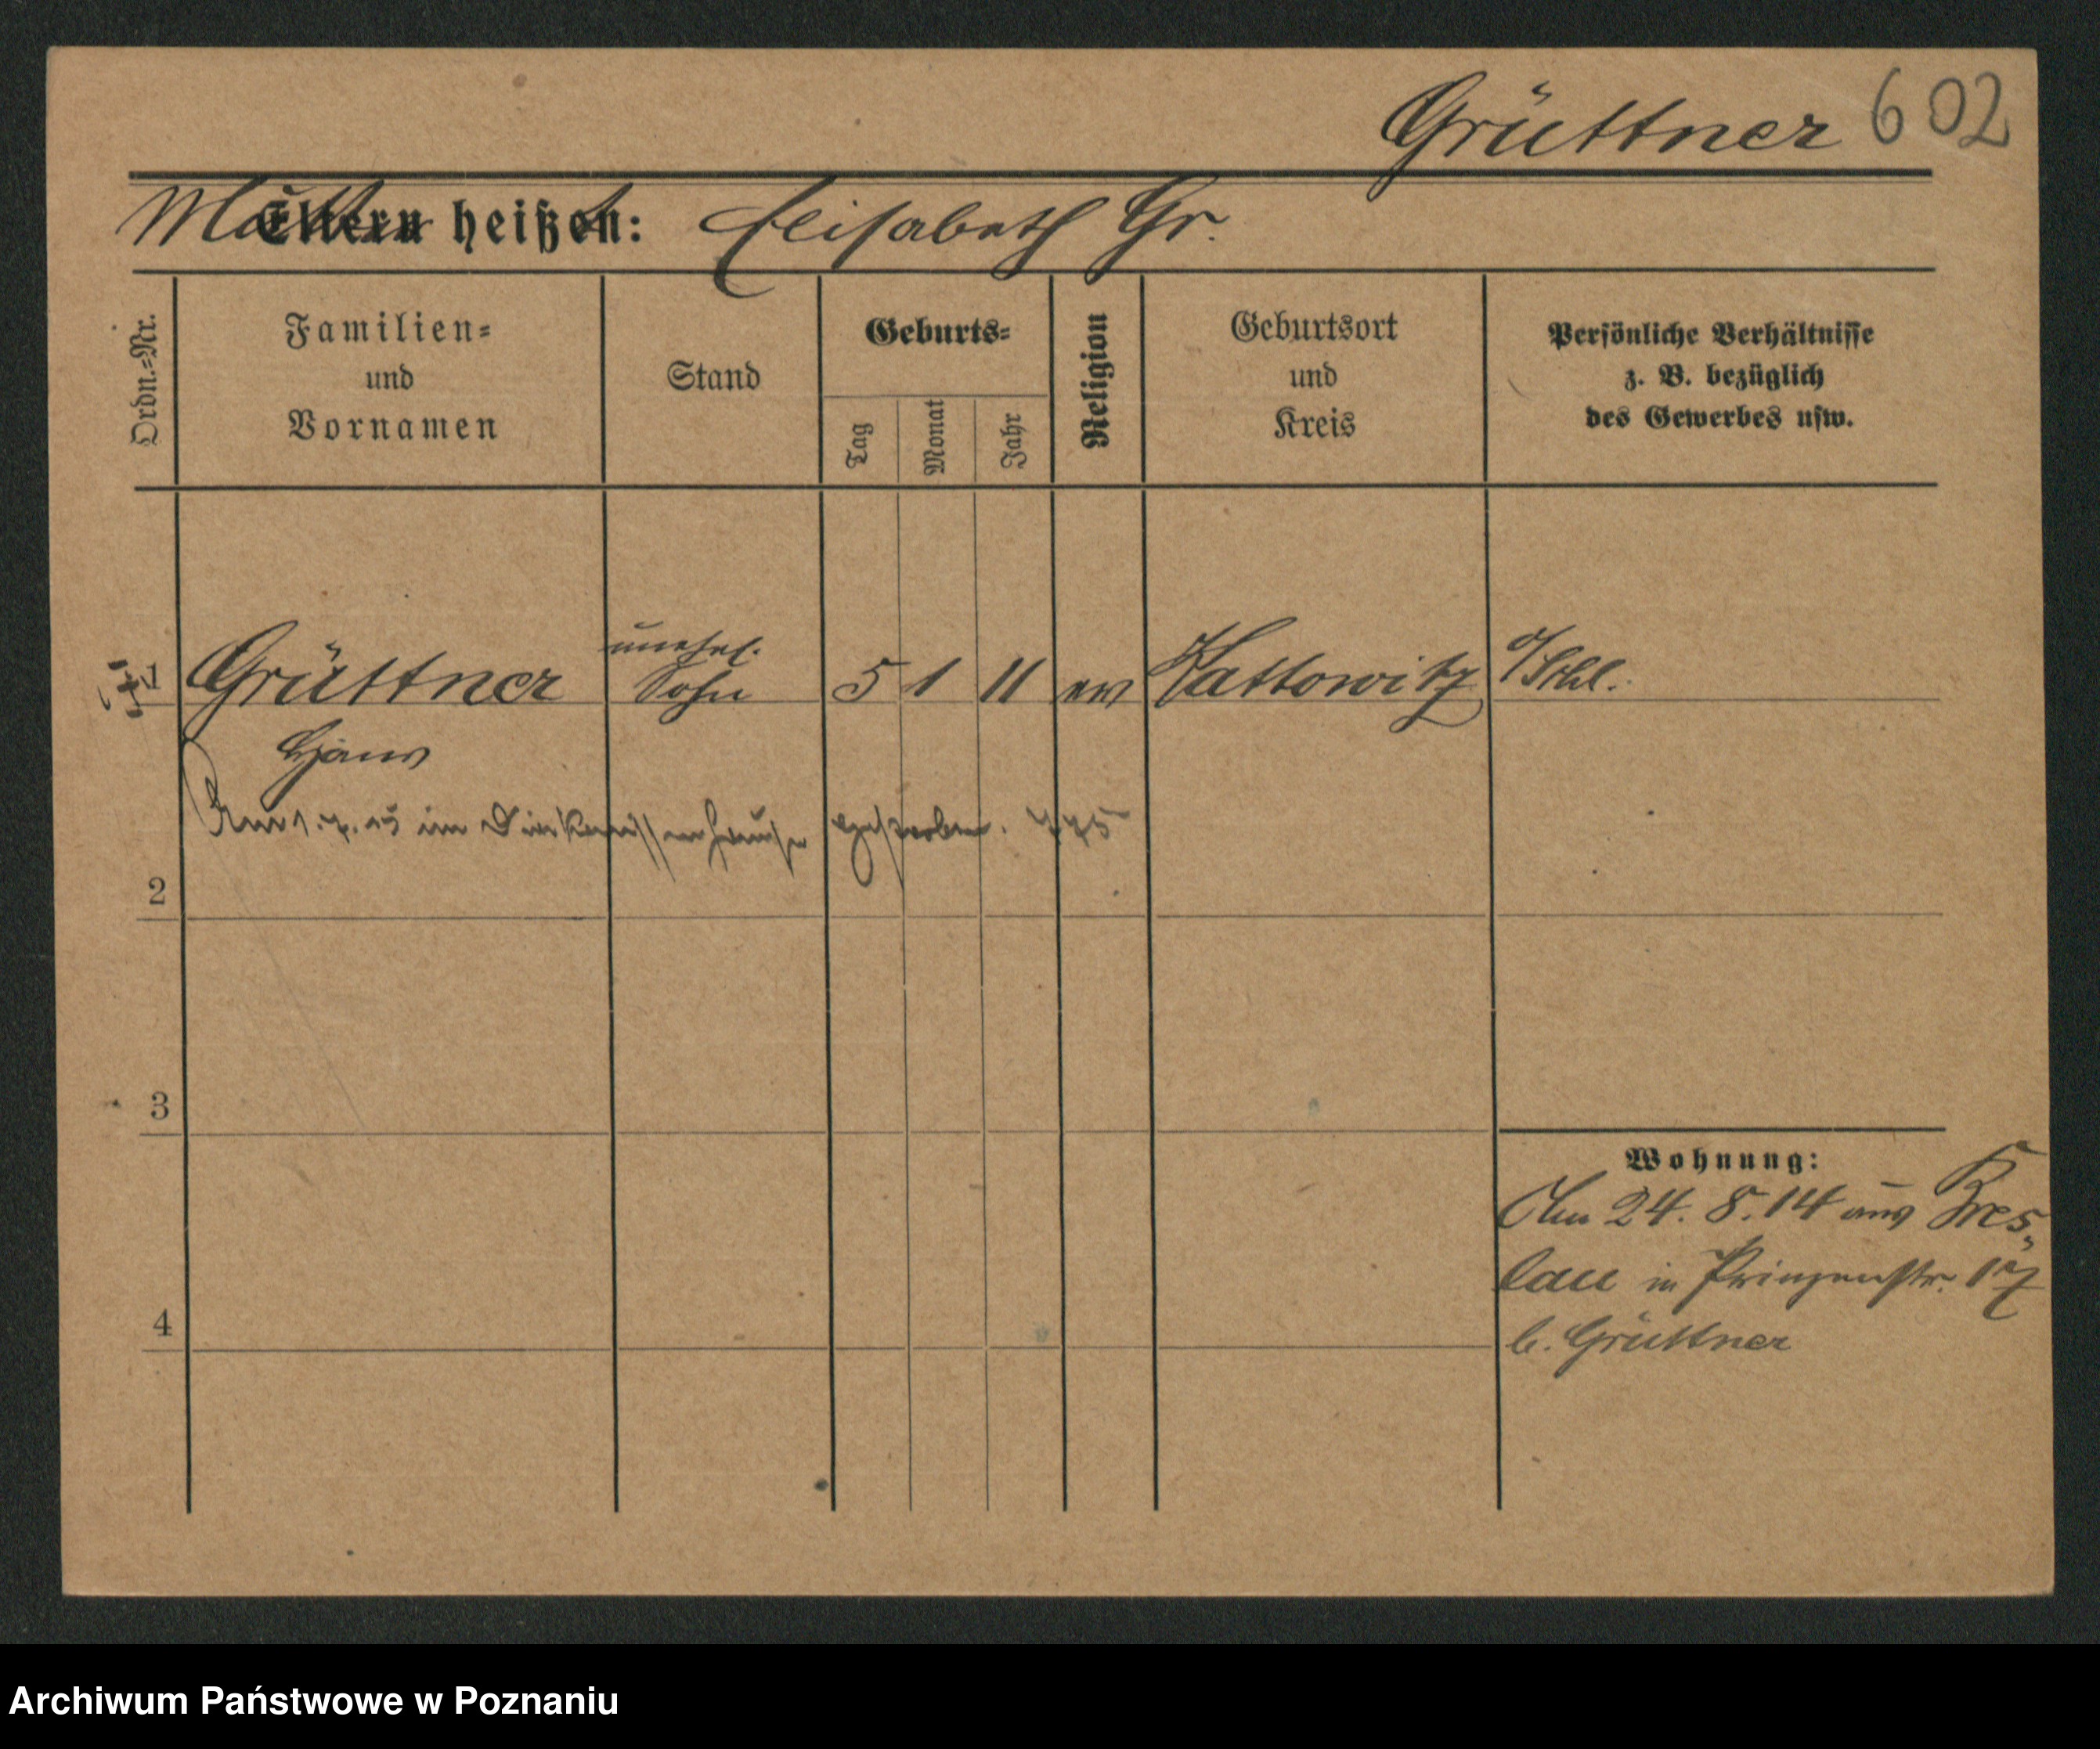 Grüttner 602
Mutter Eltern heißen: Elisabeth Gr.
Ordn.=Nr.
Familien=
und
Vornamen
Stand
Geburts=
Tag
Monat
Jahr
Religion
Geburtsort
und
Kreis
Persönliche Verhältnisse
z. B. bezüglich
des Gewerbes usw.
unehel.
1 Grüttner Sohn 5 1 11 ev Kattowitz o/Schl.
Hans
Am 1.7.15 im Diakonissenhause gestorben. 775
2
3
Wohnung:
Am 24. 8. 14 aus Bres-
lau in Prinzenstr. 17
4
b. Grüttner
Archiwum Państwowe w Poznaniu